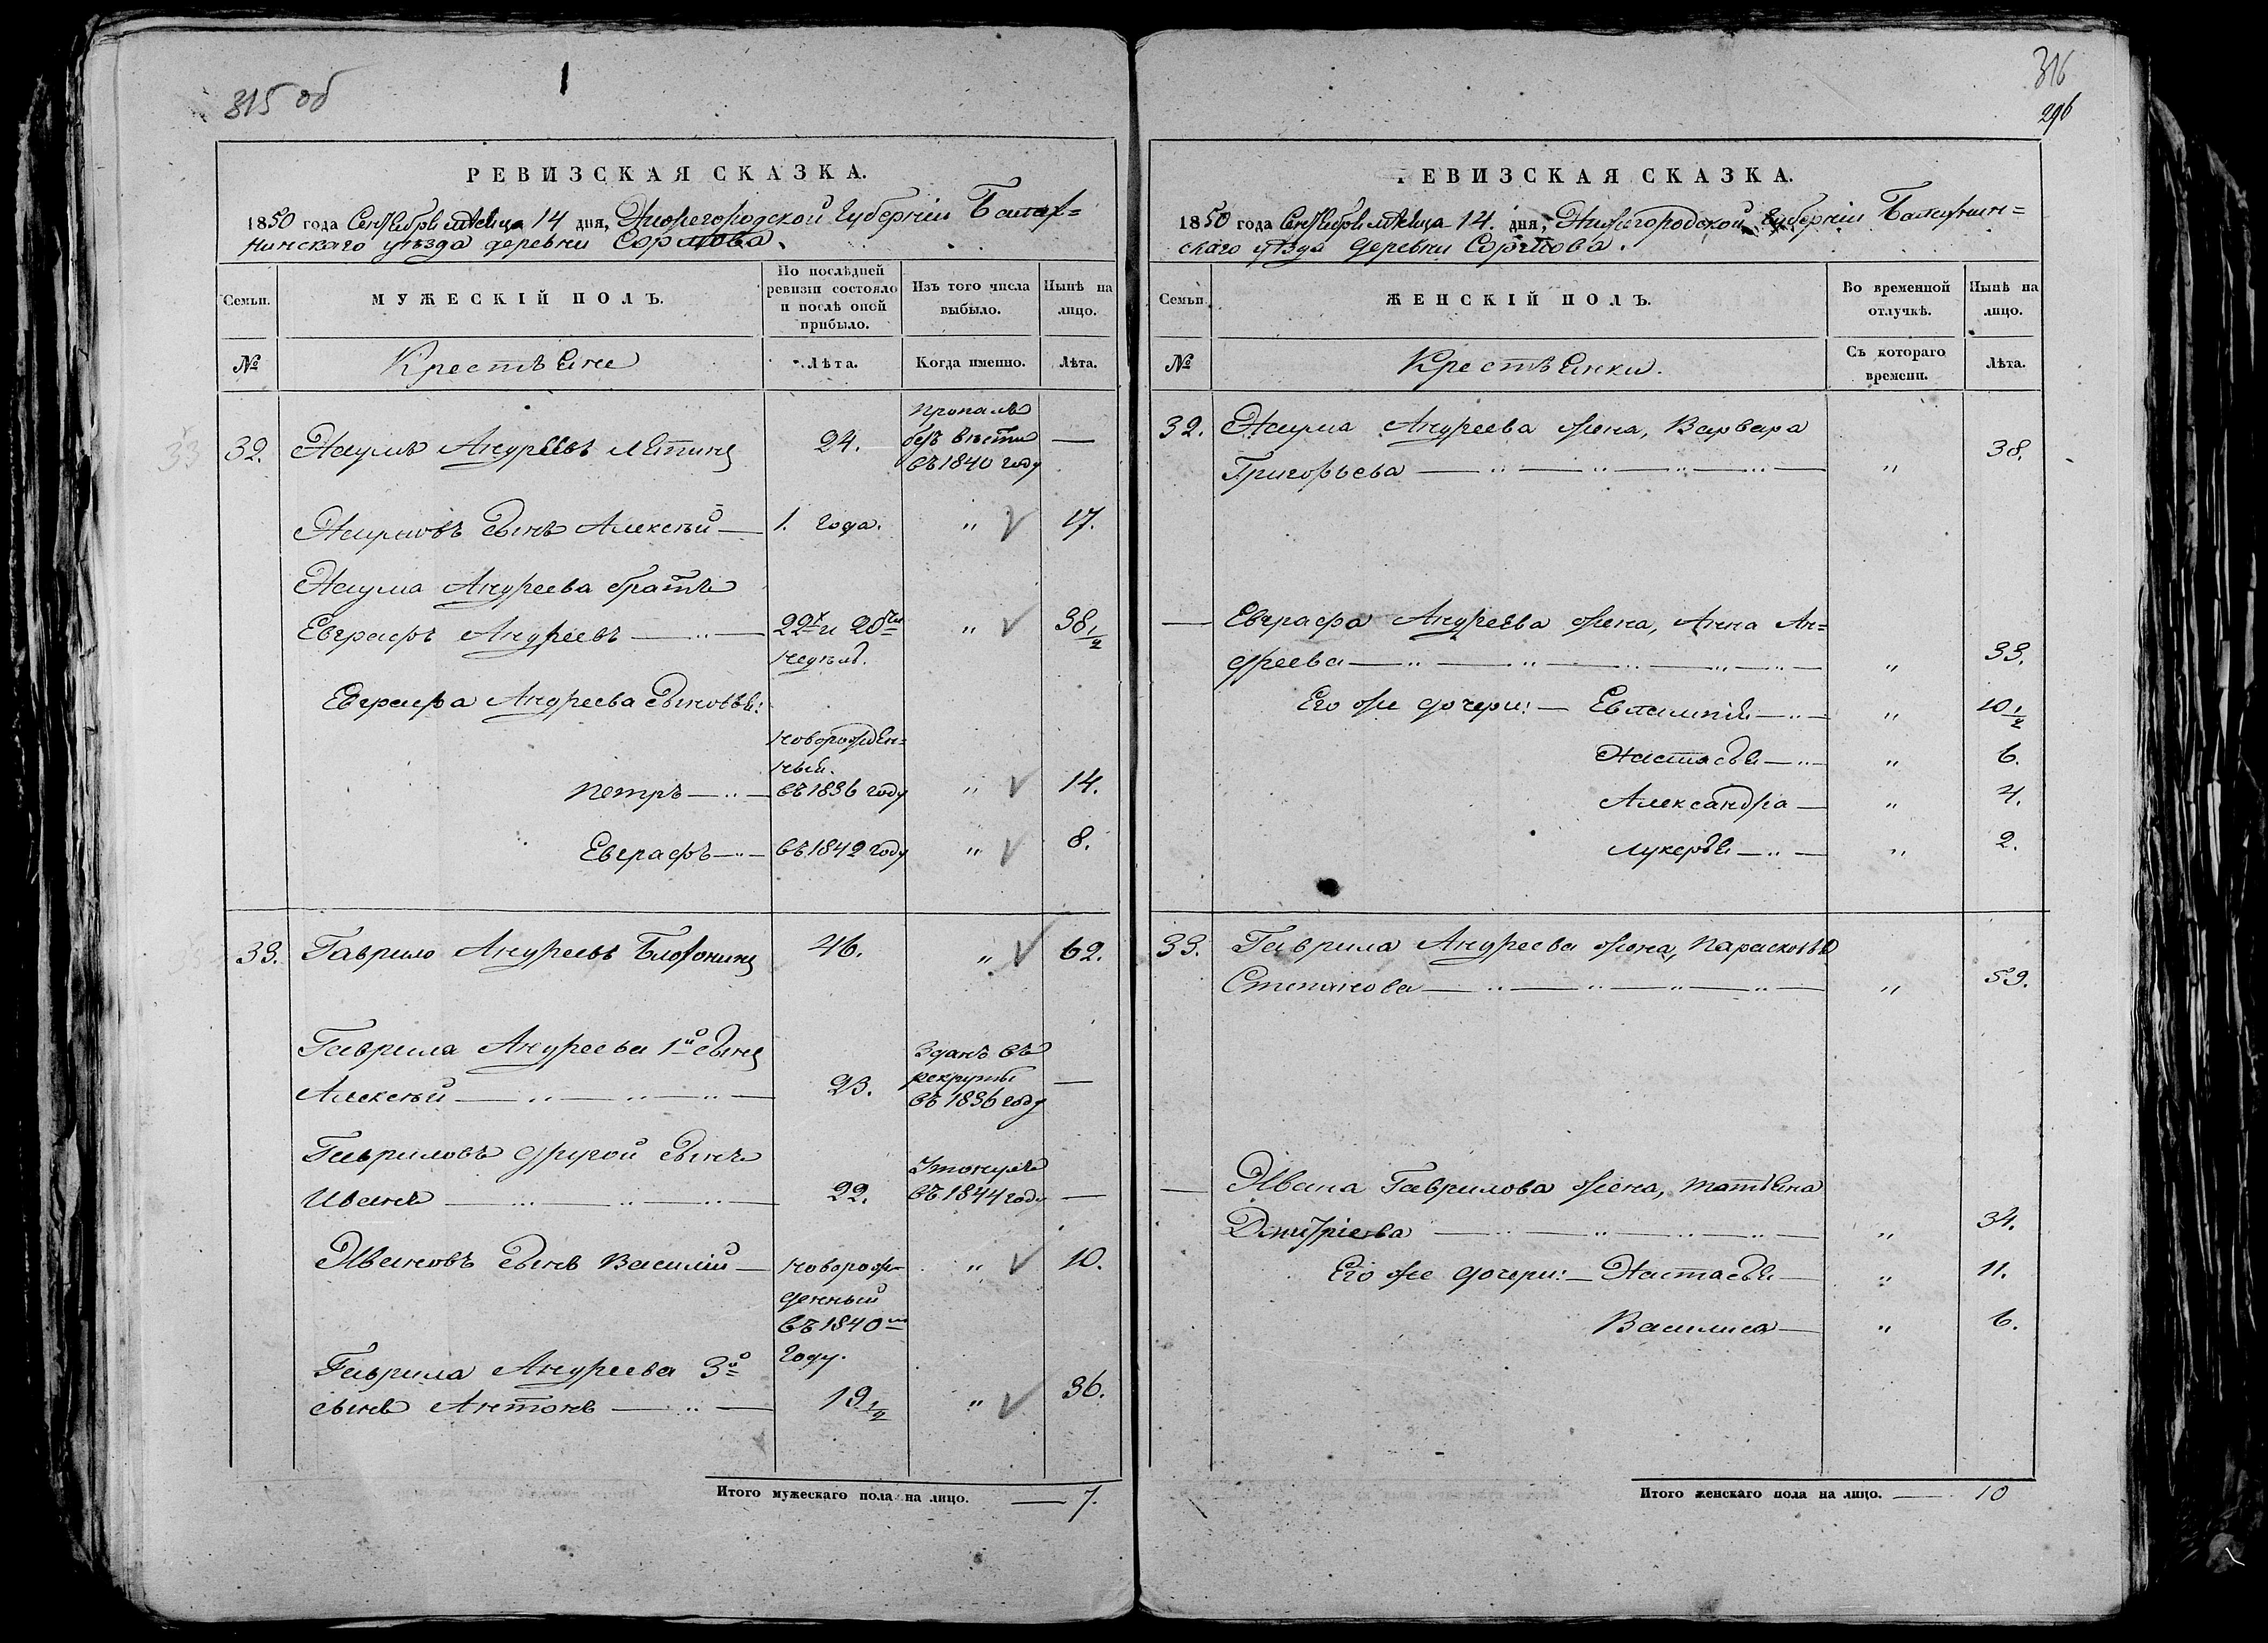 315 об
РЕВИЗСКАЯ СКАЗКА.
1850 года Сентября мѣсяца 14 дня, Нижегородской Губерніи Балах=
нинскаго уѣзда деревни Сормова.
Семьи.
МУЖЕСКІЙ ПОЛЪ.
По послѣдней ревизіи состояло и послѣ оной прибыло.
Изъ того числа выбыло.
Нынѣ на лицо.
№
Крестьяне
Лѣта.
Когда именно.
Лѣта.
32. Наумъ Андреевъ Лѣпинъ 24. пропалъ
безъ вѣсти —
въ 1840 году
Наумовъ сынъ Алексѣй — 1. года. „ 17.
Наума Андреева братъ
Евграфъ Андреевъ — „ — 22х и 20ти „ 38 1/2
недѣль.
Евграфа Андреева сыновья:
новорожден=
ный.
Петръ — „ — въ 1836 году „ 14.
Евграфъ — „ — въ 1842 году „ 8.
33. Гаврило Андреевъ 46. „ 62.
Гаврила Андреева 1й сынъ
Алексѣй — „ — „ — „ — 23. Зданъ въ
рекруты —
въ 1836 году
Гавриловъ другой сынъ
Иванъ — „ — „ — „ — 22. Утонулъ
въ 1844 году —
Ивановъ сынъ Василій — новорож- „ 10.
денный
въ 1840м
году.
Гаврила Андреева 3й
сынъ Антонъ — „ — 19 1/2 „ 36.
Итого мужескаго пола на лицо. — 7.
316
296
РЕВИЗСКАЯ СКАЗКА.
1850 года Сентября мѣсяца 14. дня, Нижегородской Губерніи Балахнин=
скаго уѣзда деревни Сормова.
Семьи.
ЖЕНСКІЙ ПОЛЪ.
Во временной отлучкѣ.
Нынѣ на лицо.
№
Крестьянки.
Съ котораго времени.
Лѣта.
32. Наума Андреева жена, Варвара
Григорьева — „ — „ — „ — „ — „ 38.
— Евграфа Андреева жена, Анна Ан=
дреева — „ — „ — „ — „ — „ — „ 33.
Его же дочери: — Евлампія — „ — „ 10 1/2
Настасья — „ — „ 6.
Александра — „ 4.
Лукерья — „ — „ 2.
33. Гаврила Андреева жена, Парасковья
Степанова — „ — „ — „ — „ — „ 59.
— Ивана Гаврилова жена, Татьяна
Дмитріева — „ — „ — „ — „ — „ 34.
Его же дочери: — Настасья — „ 11.
Василиса — „ 6.
Итого женскаго пола на лицо. — 10